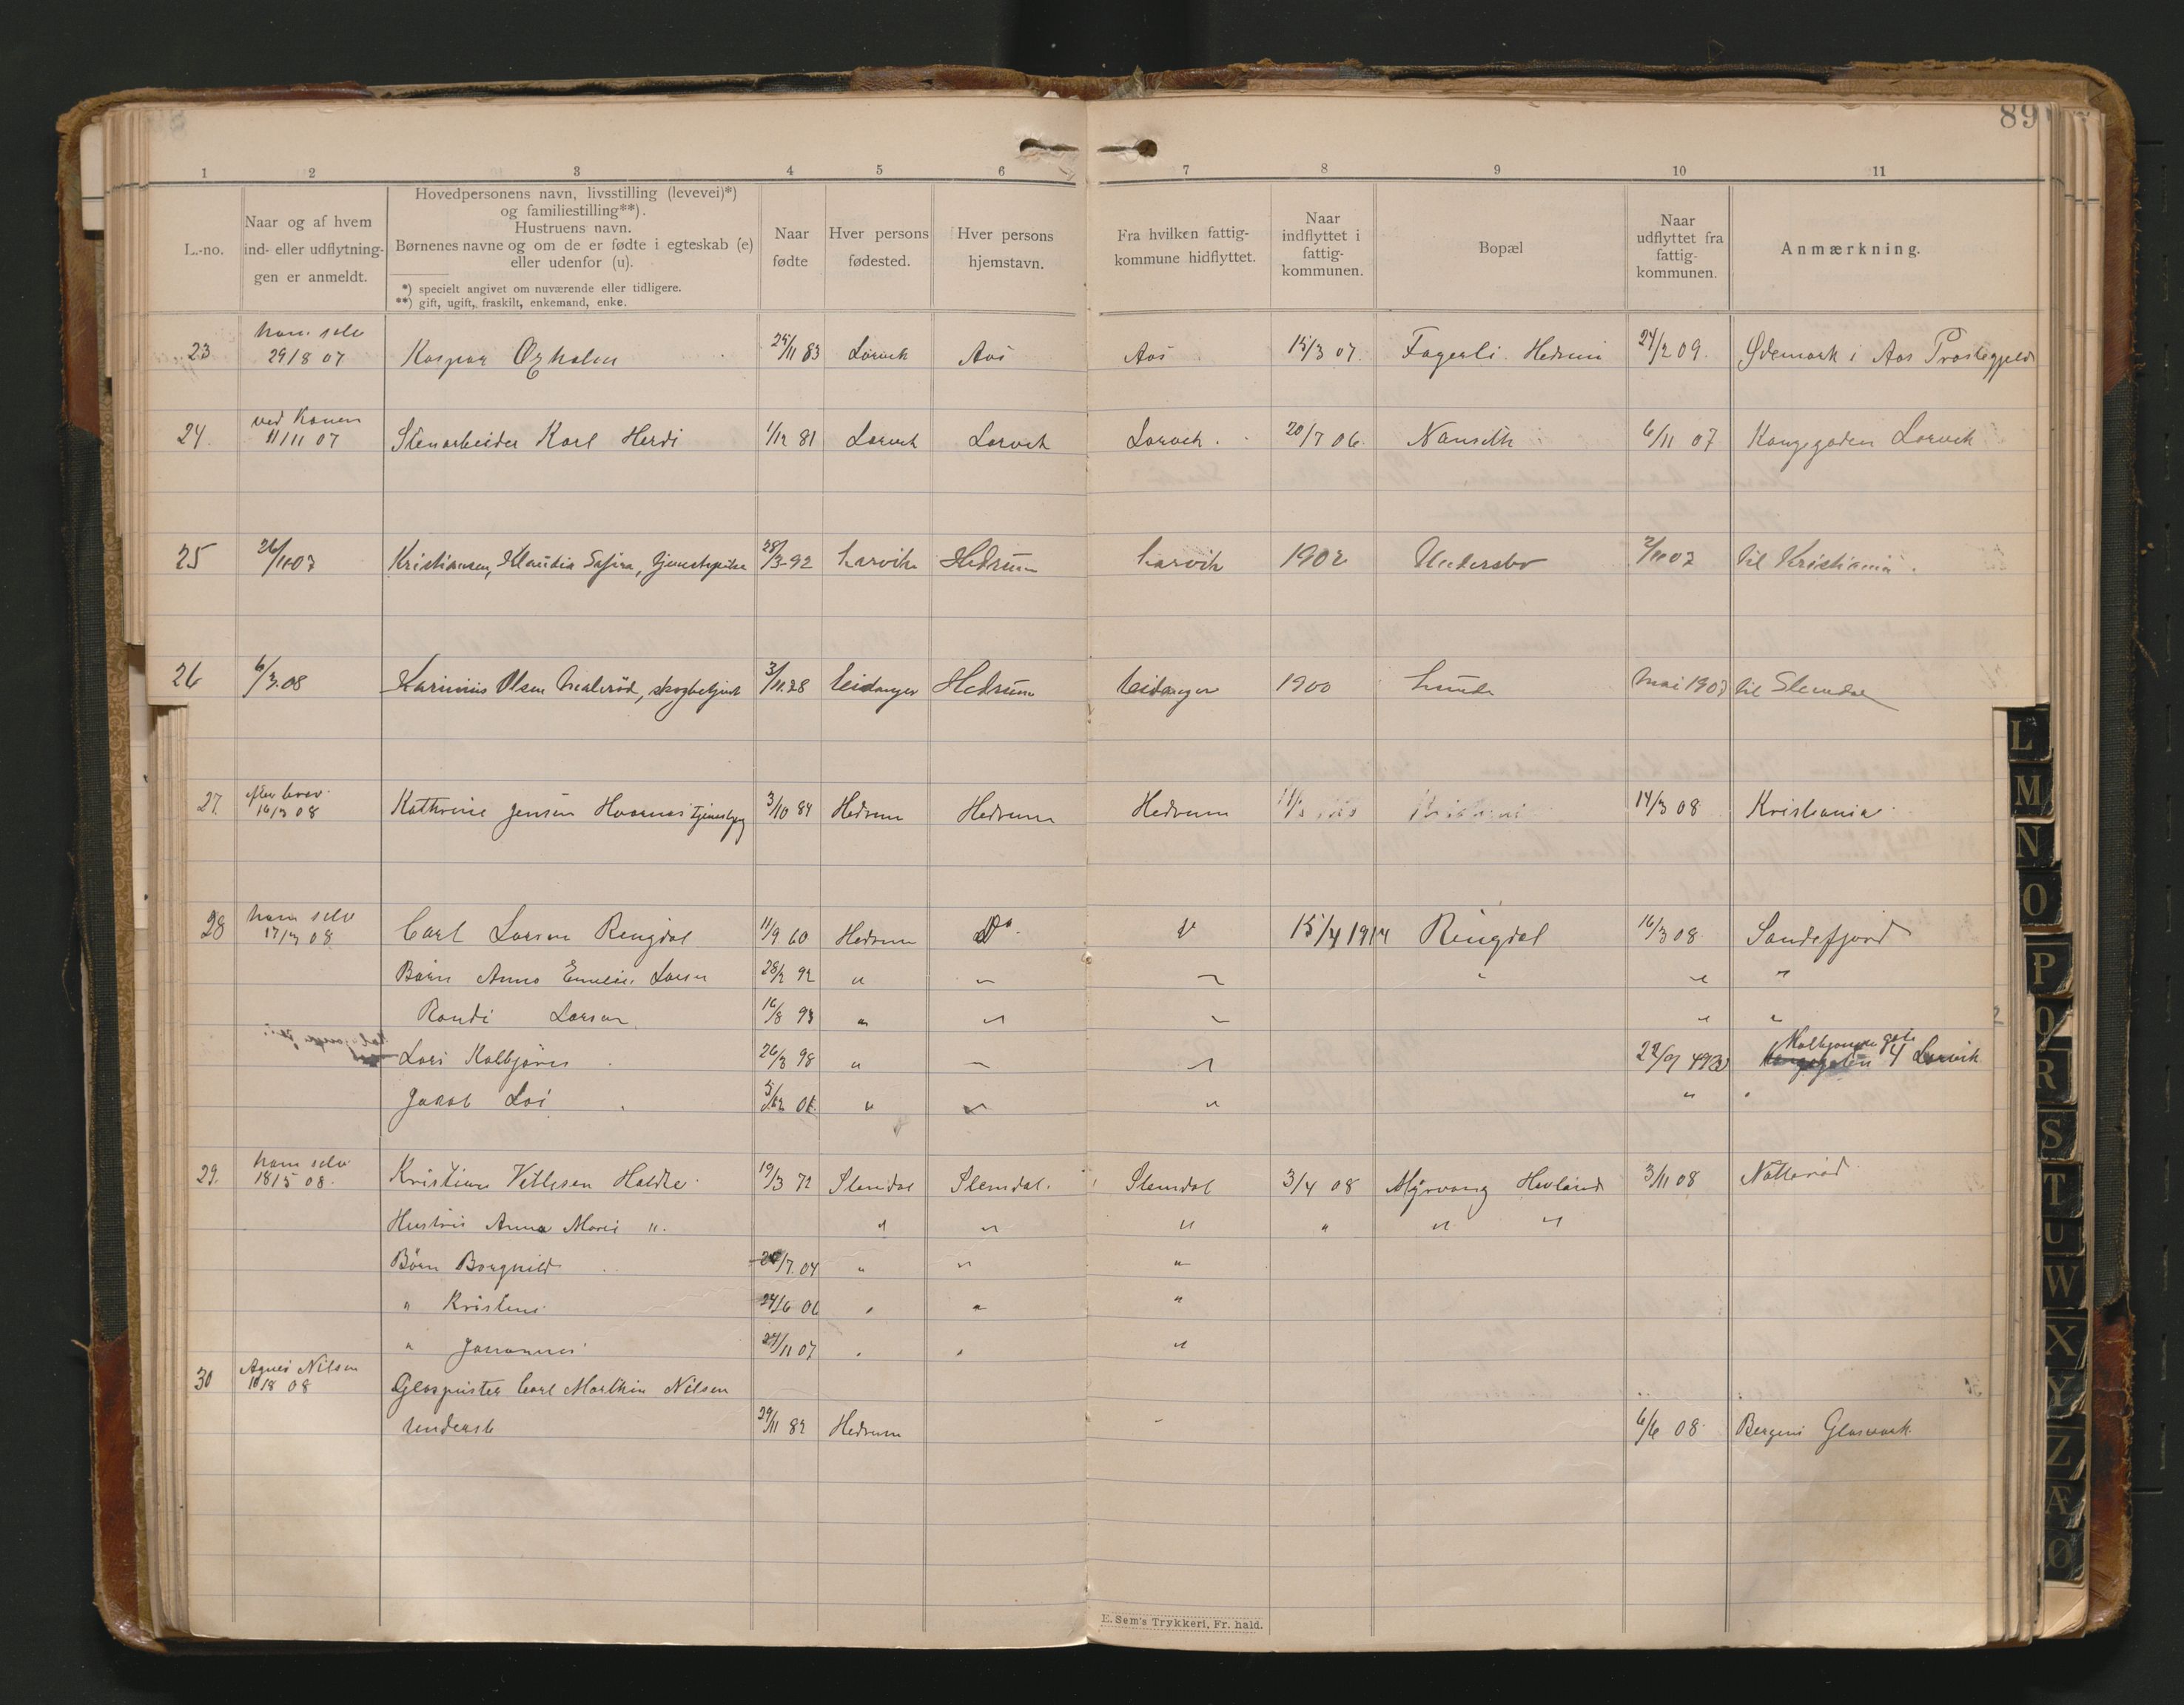 89
1 2 3 4 5 6 7 8 9 10 11
L.-no.
Naar og af hvem
ind- eller udflytning-
gen er anmeldt.
Hovedpersonens navn, livsstilling (levevei)*)
og familiestilling**).
Hustruens navn.
Børnenes navne og om de er fødte i egteskab (e)
eller udenfor (u).
*) specielt angivet om nuværende eller tidligere.
**) gift, ugift, fraskilt, enkemand, enke.
Naar
fødte
Hver persons
fødested.
Hver persons
hjemstavn.
Fra hvilken fattig-
kommune hidflyttet.
Naar
indflyttet i
fattig-
kommunen.
Bopæl
Naar
udflyttet fra
fattig-
kommunen.
Anmærkning.
ham selv
23 29/8 07 Kaspar 25/11 83 Larvik Aas Aas 15/3 07. Fagerli Hedrum 24/2 09. i Aas Prestegjeld
ved Konen
24. 11/11 07 Stenarbeider Karl Herdi 1/12 81 Larvik Larvik Larvik. 20/7 06. Nanseth 6/11 07 Kongegaden Larvik
25 26/11 07 Kristiansen, Klaudia Safira, tjenestepike 28/3-92 Larvik Hedrum Larvik 1902 Undersbo 2/11 07 til Kristiania.
26 6/3.08 Olsen skogbetjent 3/11.28 Eidanger Hedrum Eidanger 1900 Lunde Mai 1907 til Slemdal
efter brev
27. 16/3 08 Kathrine Jensen Hvarnes tjenestepig 3/10 84 Hedrum Hedrum Hedrum 14/3 08 Kristiania
ham selv
28 17/3 08 Carl Larsen Ringdal 11/9 60 Hedrum Do. 15/4 1914 Ringdal 16/3 08. Sandefjord
Børn Anna Emelie Larsen 28/2 92 " " " " " "
Randi Larsen 16/8 93 " " " " "
Kolbjørns gate
Lars Kolbjørn 26/3 98 " " " 4 Larvik
Jakob Loi " " " " "
ham selv
29. 18/5 08. Kristian Vetlesen Holdte 19/3 72 Slemdal Slemdal. Slemdal 3/4 08 Myrvang Hevland 3/11 08 Nøtterød
Hustru Anna Marie " " " " " " "
Børn Borghild /7.04 " " "
" Kristine 24/6 06 " " "
" Johannes 27/11 07 " " "
Agnes Nilsen
30 10/8 08 Glaspuster Carl Marthin Nilsen
Undersb 29/11 82 Hedrum 6/6 08 Bergens Glasværk.
E. Sem's Trykkeri, Fr. hald.
L
M
N
O
P
Q
R
S
T
U
W
X
Y
Z
Æ
Ø